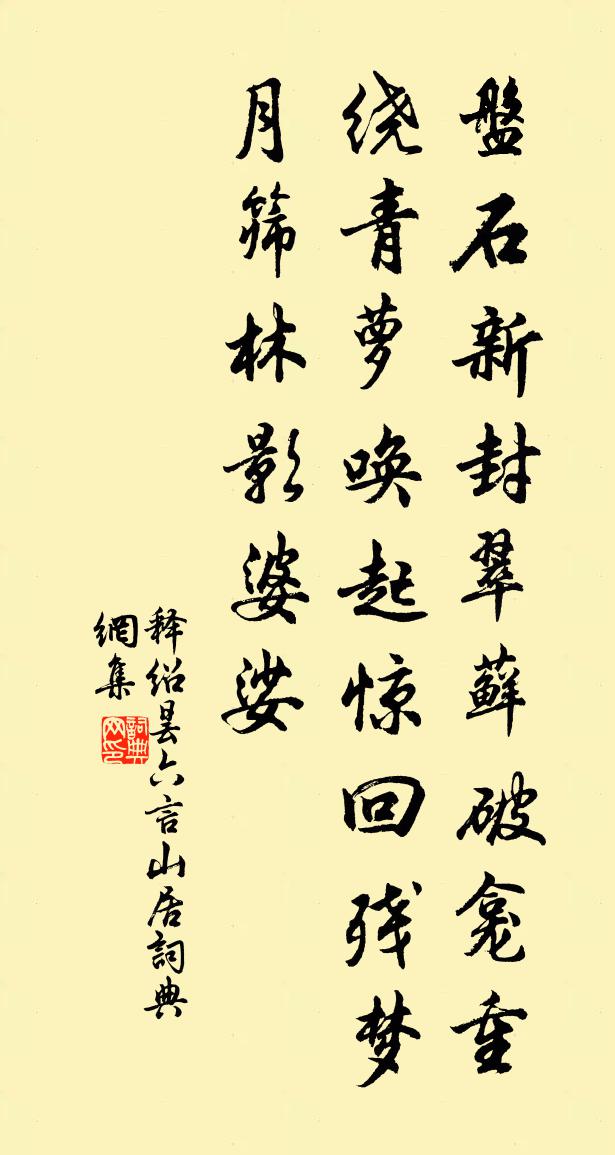 盤石新封翠蘚破龛重
绕青萝唤起惊回残梦
月筛林影婆娑
释绍昙六言山居詞典
網集
詞典网印